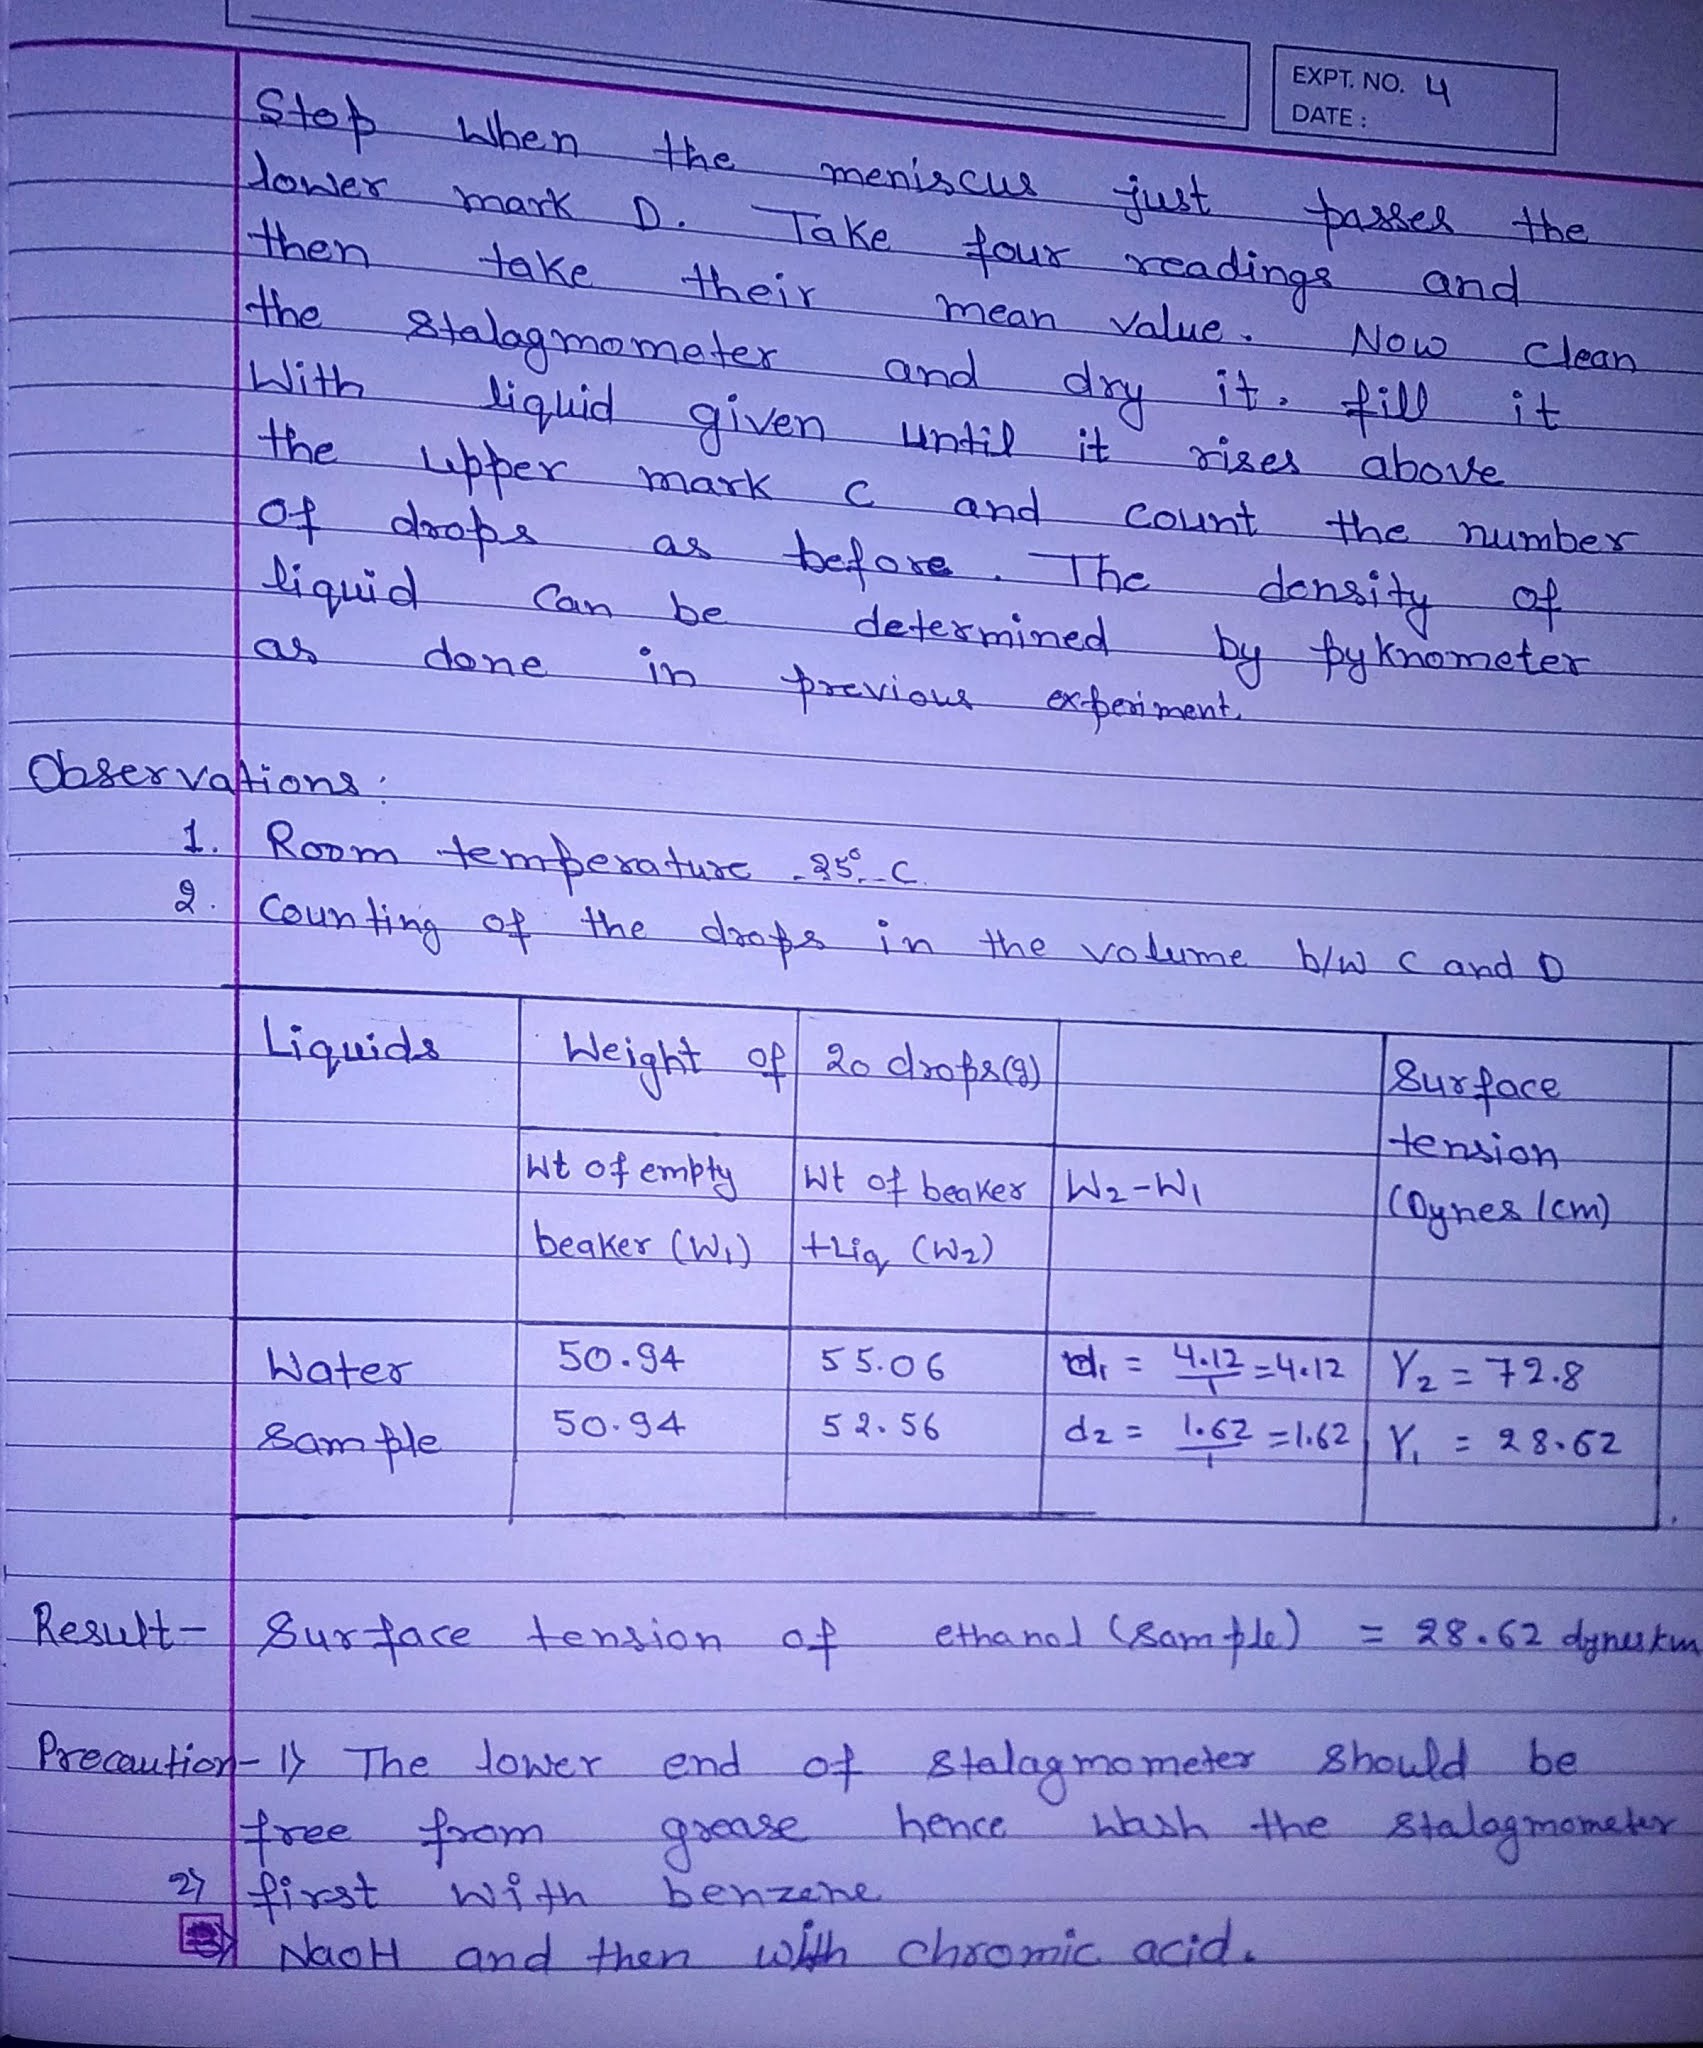 EXPT. NO. 4
DATE :
Stop when the meniscus just passes the
lower mark D. Take four readings and
then take their mean value. Now clean
the stalagmometer and dry it. fill it
With liquid given until it rises above
the upper mark C and count the number
of drops as before. The density of
liquid can be determined by pyknometer
as done in previous experiment.
Observations:
1. Room temperature 25° C.
2. Counting of the drops in the volume b/w C and D
Liquids Weight of 20 drops(g) Surface
tension
(Dynes/cm)
Wt of empty Wt of beaker W2-W1
beaker (W1) +Liq (W2)
Water 50.94 55.06 d1 = 4.12/1 = 4.12 γ2 = 72.8
Sample 50.94 52.56 d2 = 1.62/1 = 1.62 γ1 = 28.62
Result- Surface tension of ethanol (sample) = 28.62 dynes/cm
Precaution- 1) The lower end of stalagmometer should be
free from grease hence wash the stalagmometer
2) first with benzene
NaOH and then with chromic acid.